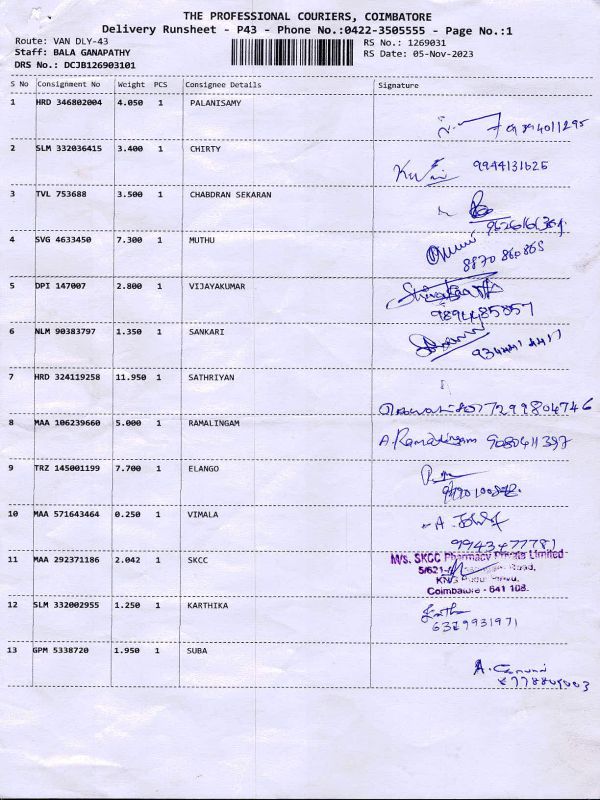 THE PROFESSIONAL COURIERS, COIMBATORE
Delivery Runsheet - P43 - Phone No.:0422-3505555 - Page No.:1
Route: VAN DLY-43 RS No.: 1269031
Staff: BALA GANAPATHY RS Date: 05-Nov-2023
DRS No.: DCJB126903101
S No Consignment No Weight PCS Consignee Details Signature
1 HRD 346802004 4.050 1 PALANISAMY
2 SLM 332036415 3.400 1 CHIRTY 9944131625
3 TVL 753688 3.500 1 CHABDRAN SEKARAN
4 SVG 4633450 7.300 1 MUTHU
8870 860865
5 DPI 147007 2.800 1 VIJAYAKUMAR
9894485857
6 NLM 90383797 1.350 1 SANKARI
7 HRD 324119258 11.950 1 SATHRIYAN
7299804746
8 MAA 106239660 5.000 1 RAMALINGAM A.Ramalingam 9080411397
9 TRZ 145001199 7.700 1 ELANGO
10 MAA 571643464 0.250 1 VIMALA
9943477781
11 MAA 292371186 2.042 1 SKCC M/s. SKCC Pharmacy Private Limited
5/621- Road,
Coimbatore - 641 108.
12 SLM 332002955 1.250 1 KARTHIKA
6379931971
13 GPM 5338720 1.950 1 SUBA